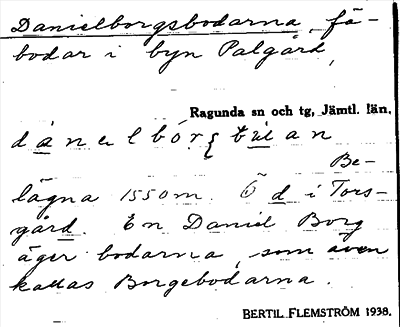 Danielborgsbodarna, fä-
bodar i byn Palgård,
Ragunda sn och tg, Jämtl. län.
Be-
lägna 1550 m. Ö d i Tors-
gård. En Daniel Borg
äger bodarna, som även
kallas Borgebodarna.
BERTIL FLEMSTRÖM 1938.